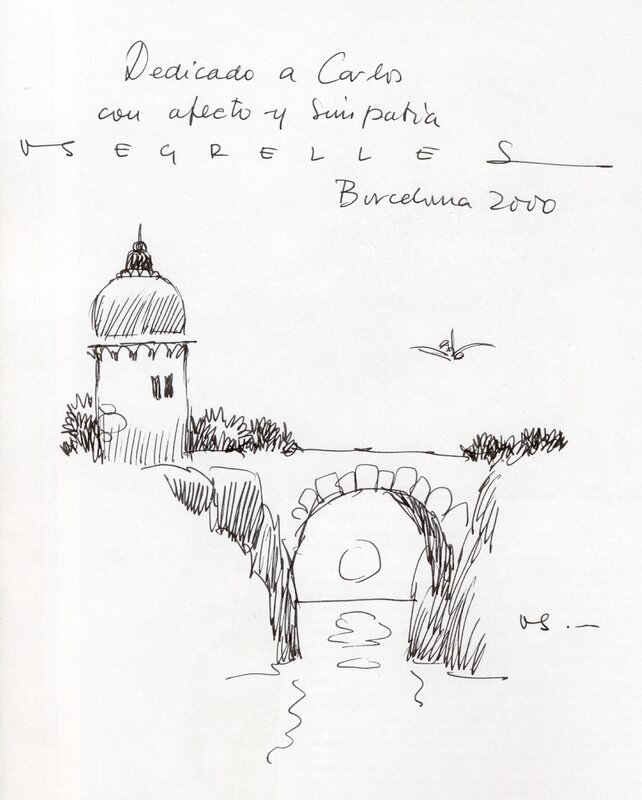 Dedicado a Carlos
con afecto y simpatia
VS EGRELLES
Barcelona 2000
VS.-